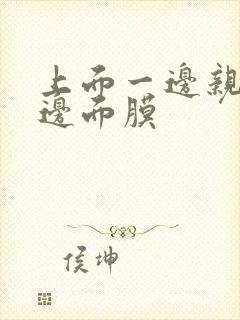 上而一邊親
邊而膜
侯坤